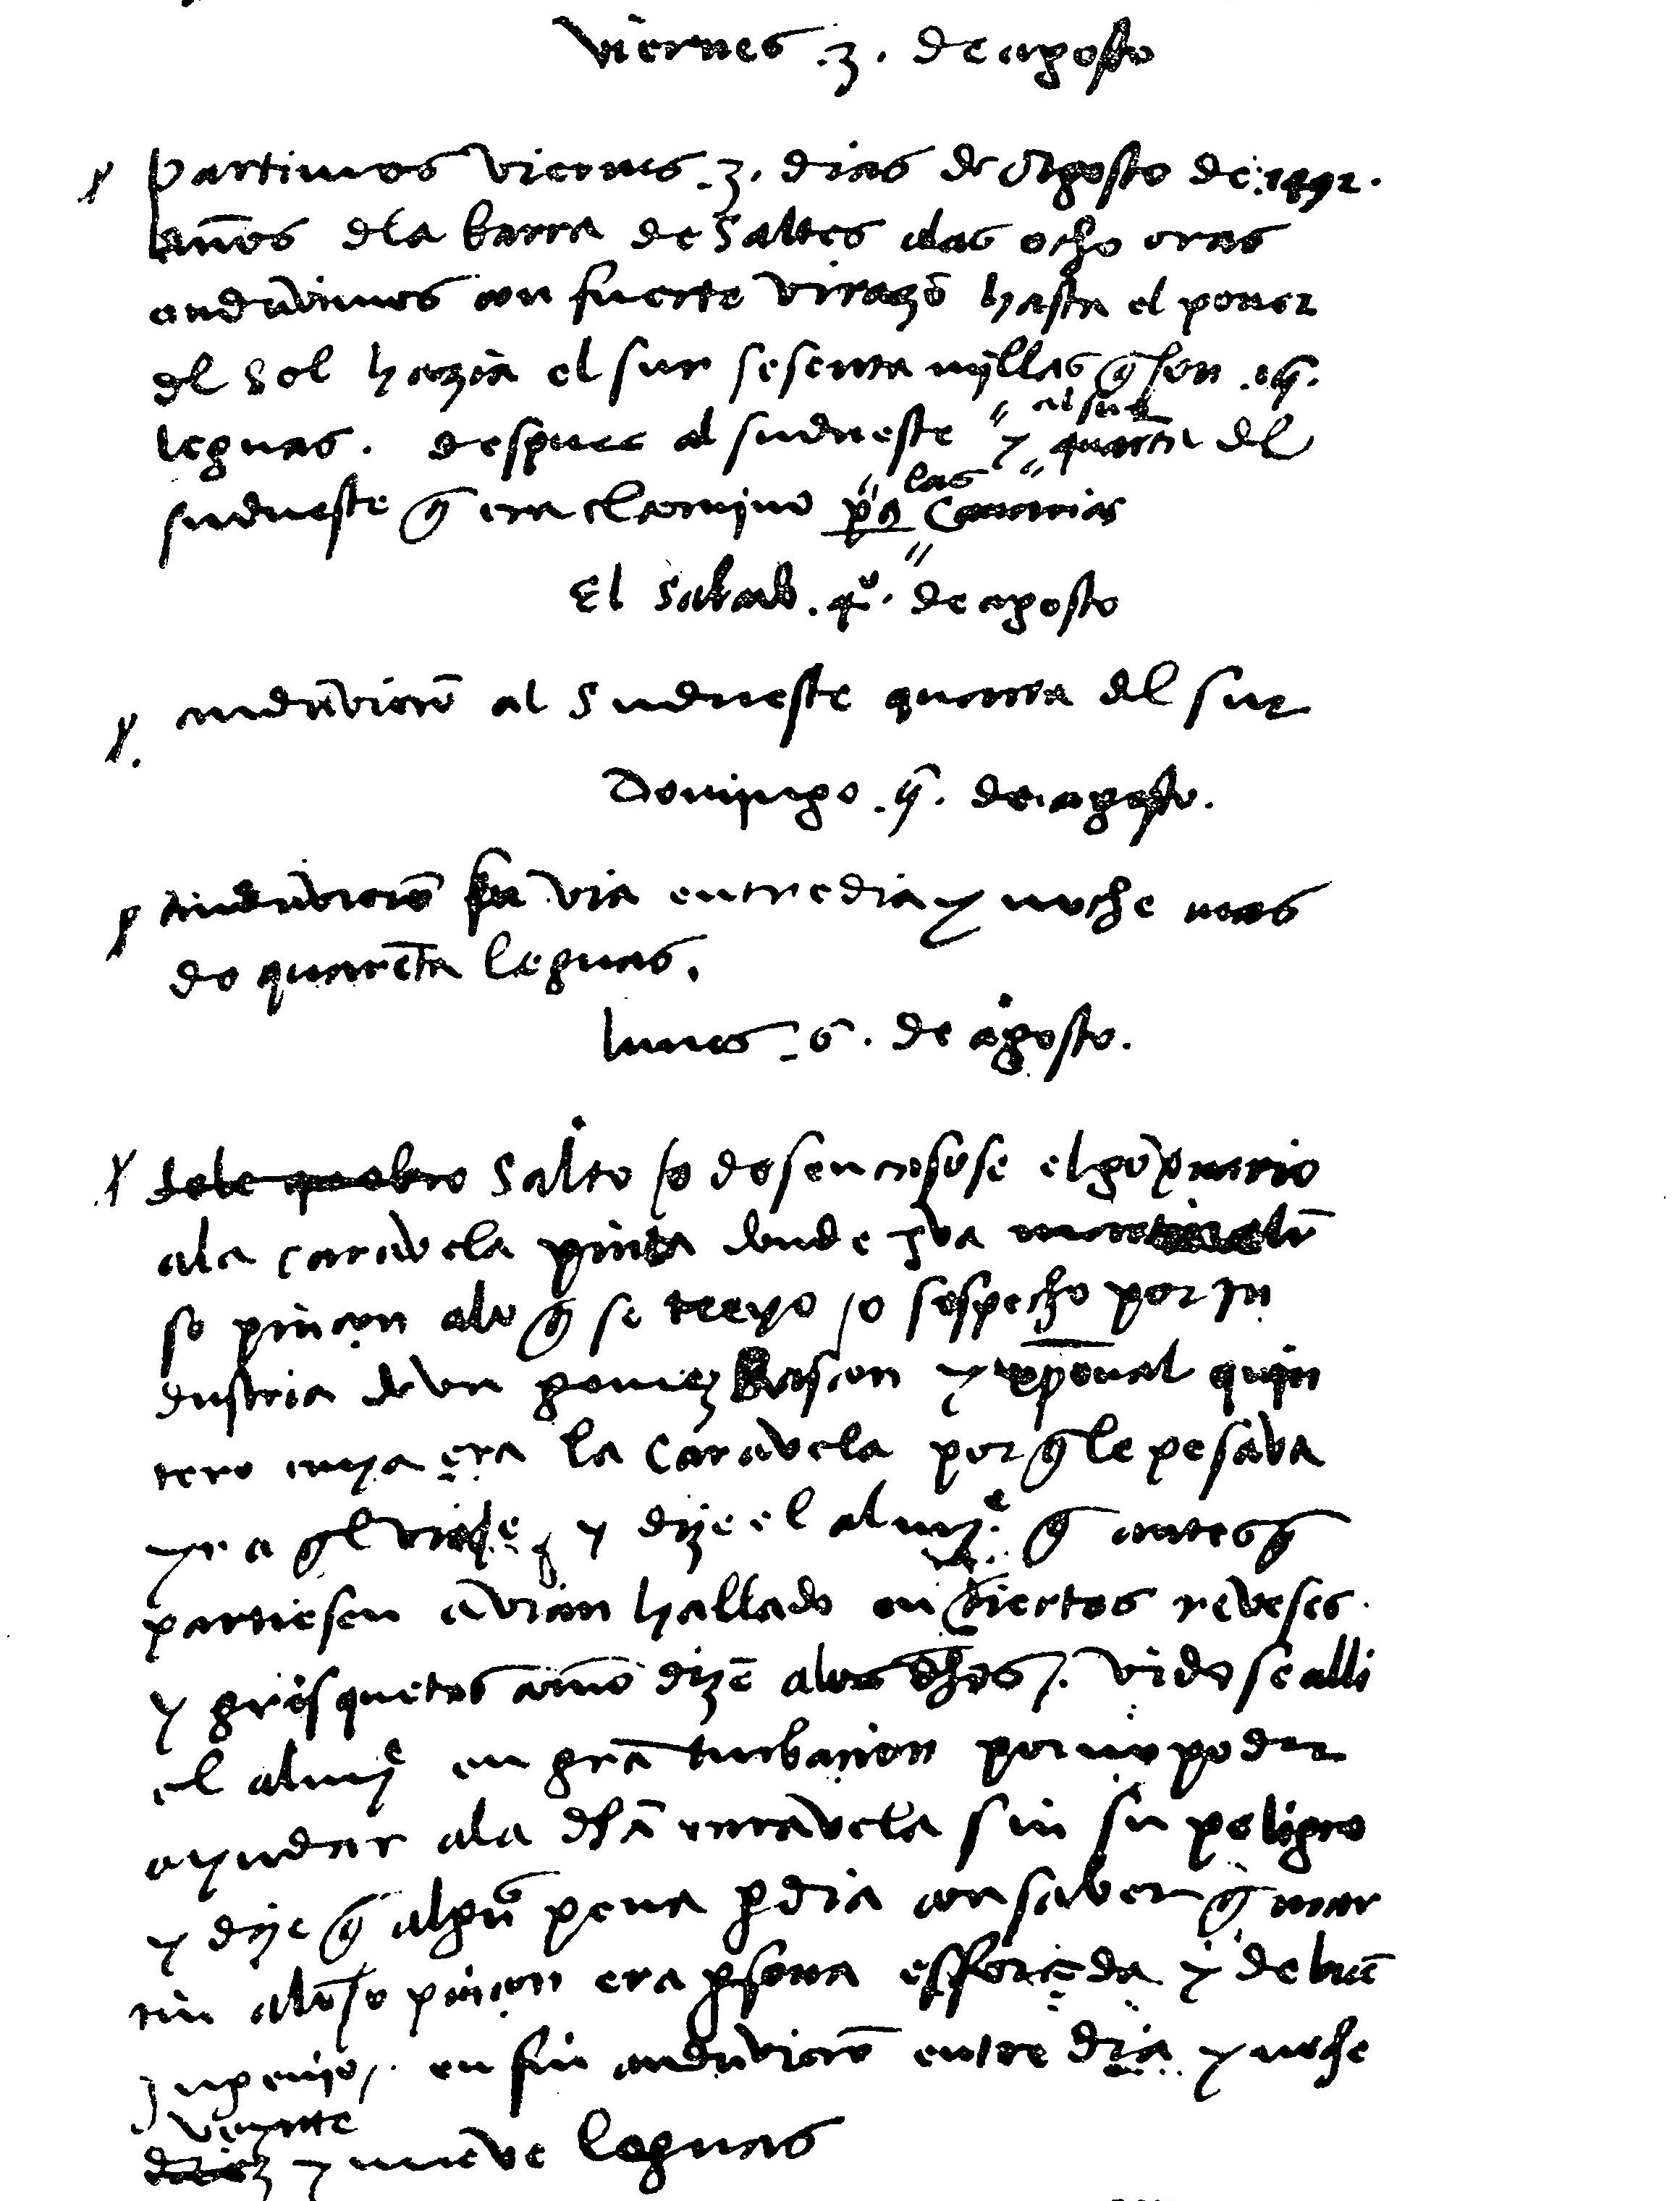 viernes .3. de agosto
partimos viernes .3. dias de agosto de .1492.
años dla barra de Saltes alas ocho oras
anduvimos con fuerte virazõ hasta el poner
dl Sol hazia el sur sesenta millas q̃ son .15.
leguas . despues al sudueste y al sur quarta dl
sudueste q̃ era el camino pa las Canarias
El Sabado .4º. de agosto
anduvierõ al Sudueste quarta dl sur
Domingo .5. de agosto.
Anduvierõ su via entre dia y noche mas
de quarẽta leguas.
lunes .6. de agosto.
Salto /o desencasose el govȓnario
ala caravela pinta donde yva martin alõ
so pinçon alo q̃ se creyo /o sospecho por yn
dustria de un gomez Rascon y xp̃oval quin
tero cuya era la caravela por q̃ le pesava
yr a q̃l viaje / y dize el almiᵉ q̃ antes q̃
partiesen avian hallado en çiertos reveses
y grisquetas como dizẽ alos dhos /. vidose alli
el almiᵉ en grã turbacion por no poder
ayudar ala dhã caravela sin su peligro
y dize q̃ algũa pena pdia con saber q̃ mar
tin alõso pinçon era psona esforçada y de buẽ
yngenio /. en fin anduvierõ entre dia y noche
veynte
y nueve leguas